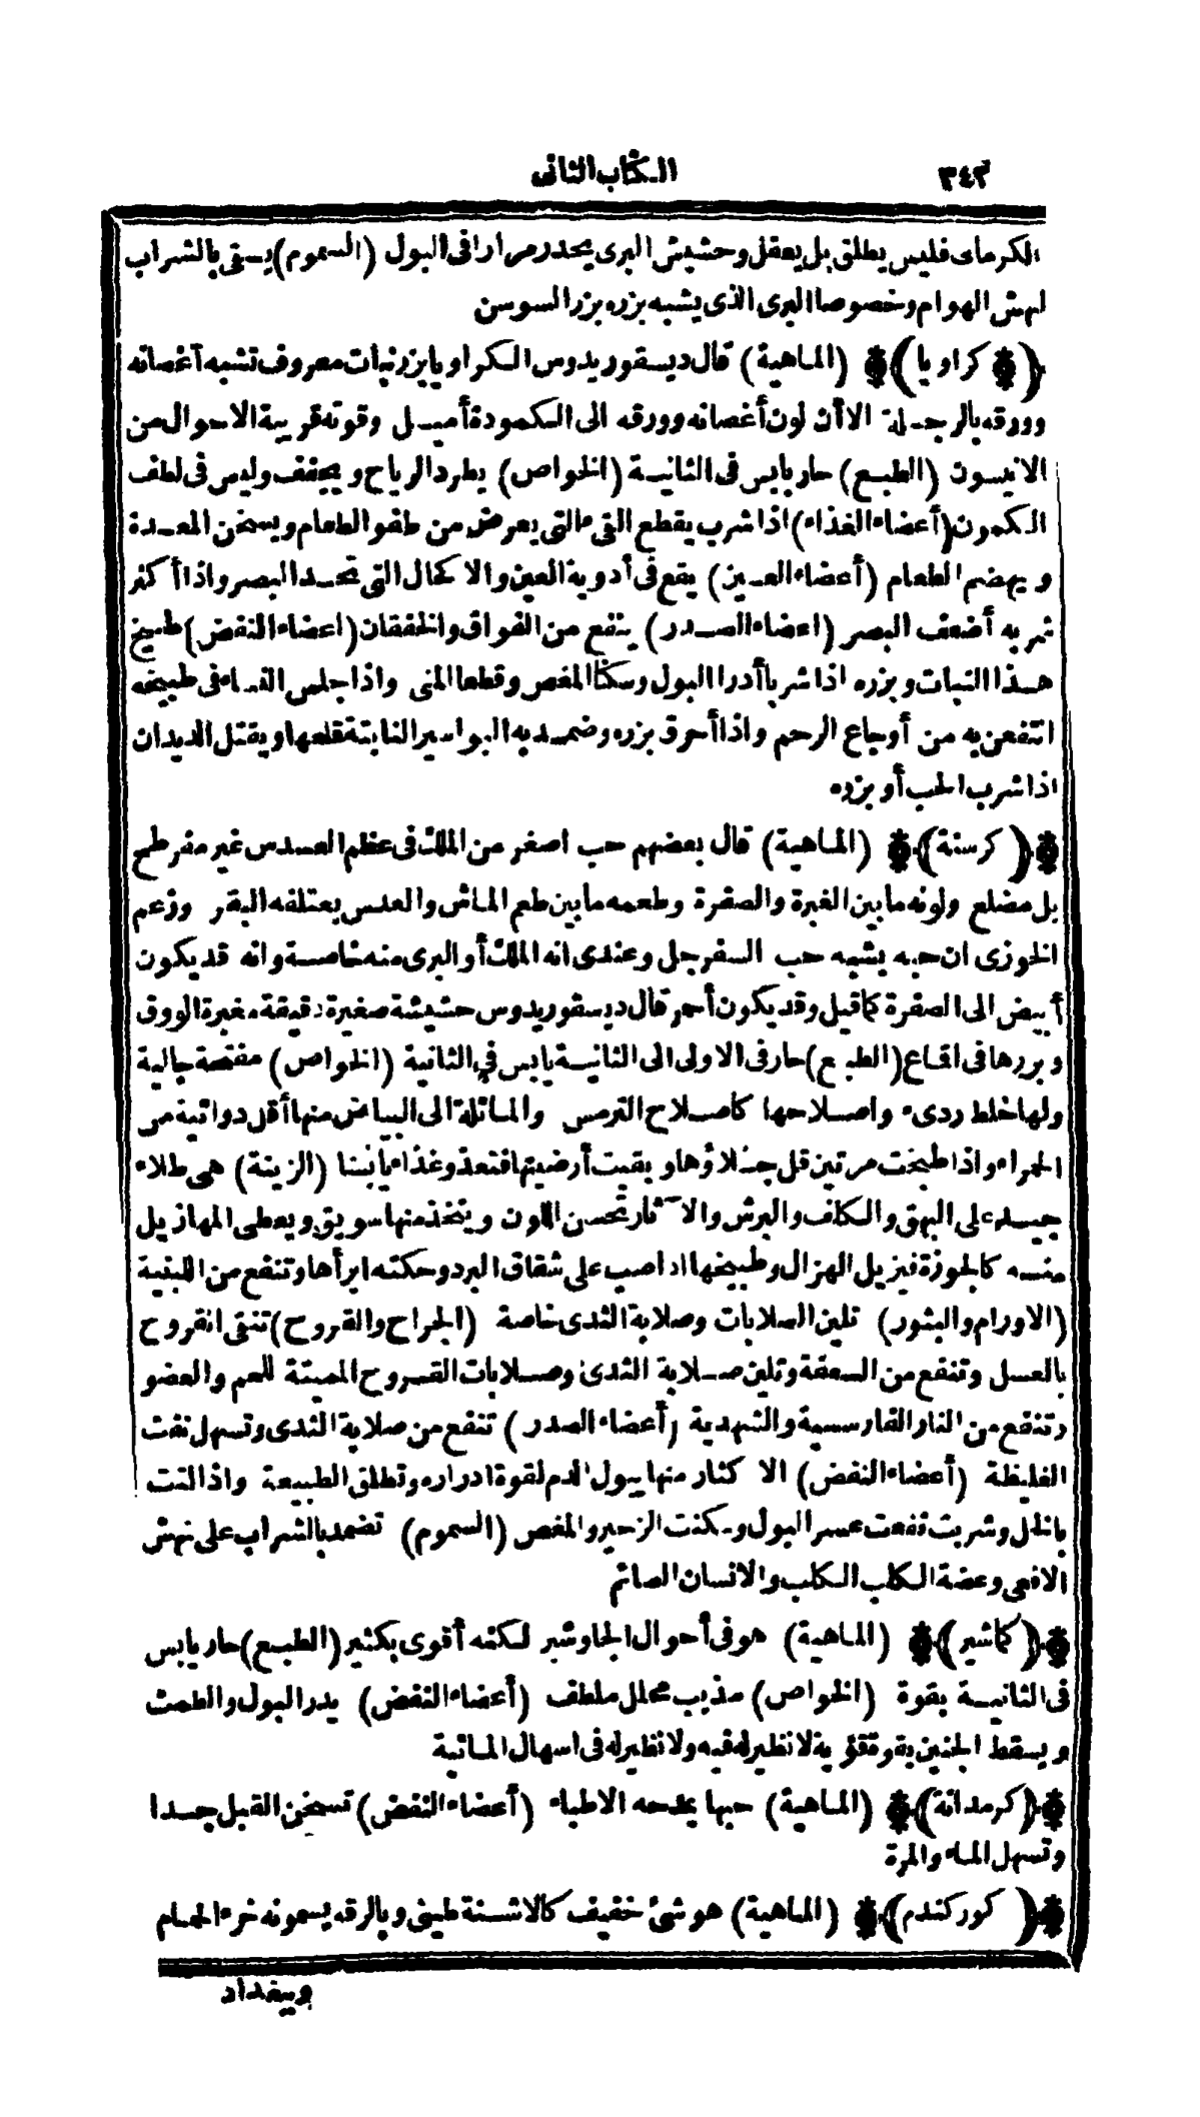 ٣٤٣ الكتاب الثانى
الكرمانى فليس يطلق بل يعقل وحشيش البرى يحدر مرارا فى البول (السموم) يسقى بالشراب
لنهش الهوام وخصوصا البرى الذى يشبه بزره بزر السوسن
(كراويا) (الماهية) قال ديسقوريدوس الكراويا بزر نبات معروف تشبه أغصانه
وورقه بالرجلة الا أن لون أغصانه وورقه الى الكمودة أميل وقوته قريبة الاحوال من
الانيسون (الطبع) حار يابس فى الثانية (الخواص) يطرد الرياح ويجفف وليس فى لطف
الكمون (أعضاء الغذاء) اذا شرب يقطع القىء التى يعرض من طفو الطعام ويسخن المعدة
ويهضم الطعام (أعضاء العين) يقع فى أدوية العين والاكحال التى تحد البصر واذا أكثر
شربه أضعف البصر (اعضاء الصدر) ينفع من الفواق والخفقان (اعضاء النفض) طبيخ
هذا النبات وبزره اذا شربا أدرا البول وسكنا المغص وقطعا المنى واذا جلس النساء فى طبيخه
انتفعن به من أوجاع الرحم واذا أحرق بزره وضمد به البواسير النابتة قلعها ويقتل الديدان
اذا شرب الحب أو بزره
(كرسنة) (الماهية) قال بعضهم حب اصغر من الملك فى عظم العدس غير مفرطح
بل مضلع ولونه ما بين الغبرة والصفرة وطعمه ما بين طعم الماش والعدس يعتلفه البقر وزعم
الخوزى ان حبه يشبه حب السفرجل وعندى انه الملك أو البرى منه خاصة وانه قد يكون
أبيض الى الصفرة كما قيل وقد يكون أحمر قال ديسقوريدوس حشيشة صغيرة دقيقة مغبرة الورق
وبزرها فى اقماع (الطبع) حار فى الاولى الى الثانية يابس فى الثانية (الخواص) مفتحة جالية
ولها خلط ردىء واصلاحها كاصلاح الترمس والمائلة الى البياض منها أقل دوائية من
الحمراء واذا طبخت مرتين قل جلاؤها وبقيت أرضيتها فتغذو غذاء يابسا (الزينة) هى طلاء
جيد على البهق والكلف والبرش والآثار تحسن اللون ويتخذ منها سويق ويعطى المهازيل
منه كالجوزة فيزيل الهزال وطبيخها اذا صب على شقاق البرد وحكته ابرأها وتنفع من اللبنية
(الاورام والبثور) تلين الصلابات وصلابة الثدى خاصة (الجراح والقروح) تنقى القروح
بالعسل وتنفع من السعفة وتلين صلابة الثدى وصلابات القروح المميتة للعم والعضو
وتنفع من النار الفارسية والشهدية (أعضاء الصدر) تنفع من صلابة الثدى وتسهل نفث
الغليظة (أعضاء النفض) الاكثار منها يبول الدم لقوة ادراره وتطلق الطبيعة واذا لتت
بالخل وشربت نفعت عسر البول وسكنت الزحير والمغص (السموم) تضمد بالشراب على نهش
الافعى وعضة الكلب الكلب والانسان الصائم
(كماشير) (الماهية) هو فى أحوال الجاوشير لكنه أقوى بكثير (الطبع) حار يابس
فى الثانية بقوة (الخواص) مذيب محلل ملطف (أعضاء النفض) يدر البول والطمث
ويسقط الجنين بقوة قوية لا نظير له فيه ولا نظير له فى اسهال المائية
(كرمدانة) (الماهية) حبها يمدحه الاطباء (أعضاء النفض) تسخن القبل جدا
وتسهل الماء والمرة
(كوركندم) (الماهية) هو شئ خفيف كالاشنة طينى وبالرقه يسمونه خرء الحمام
وببغداد